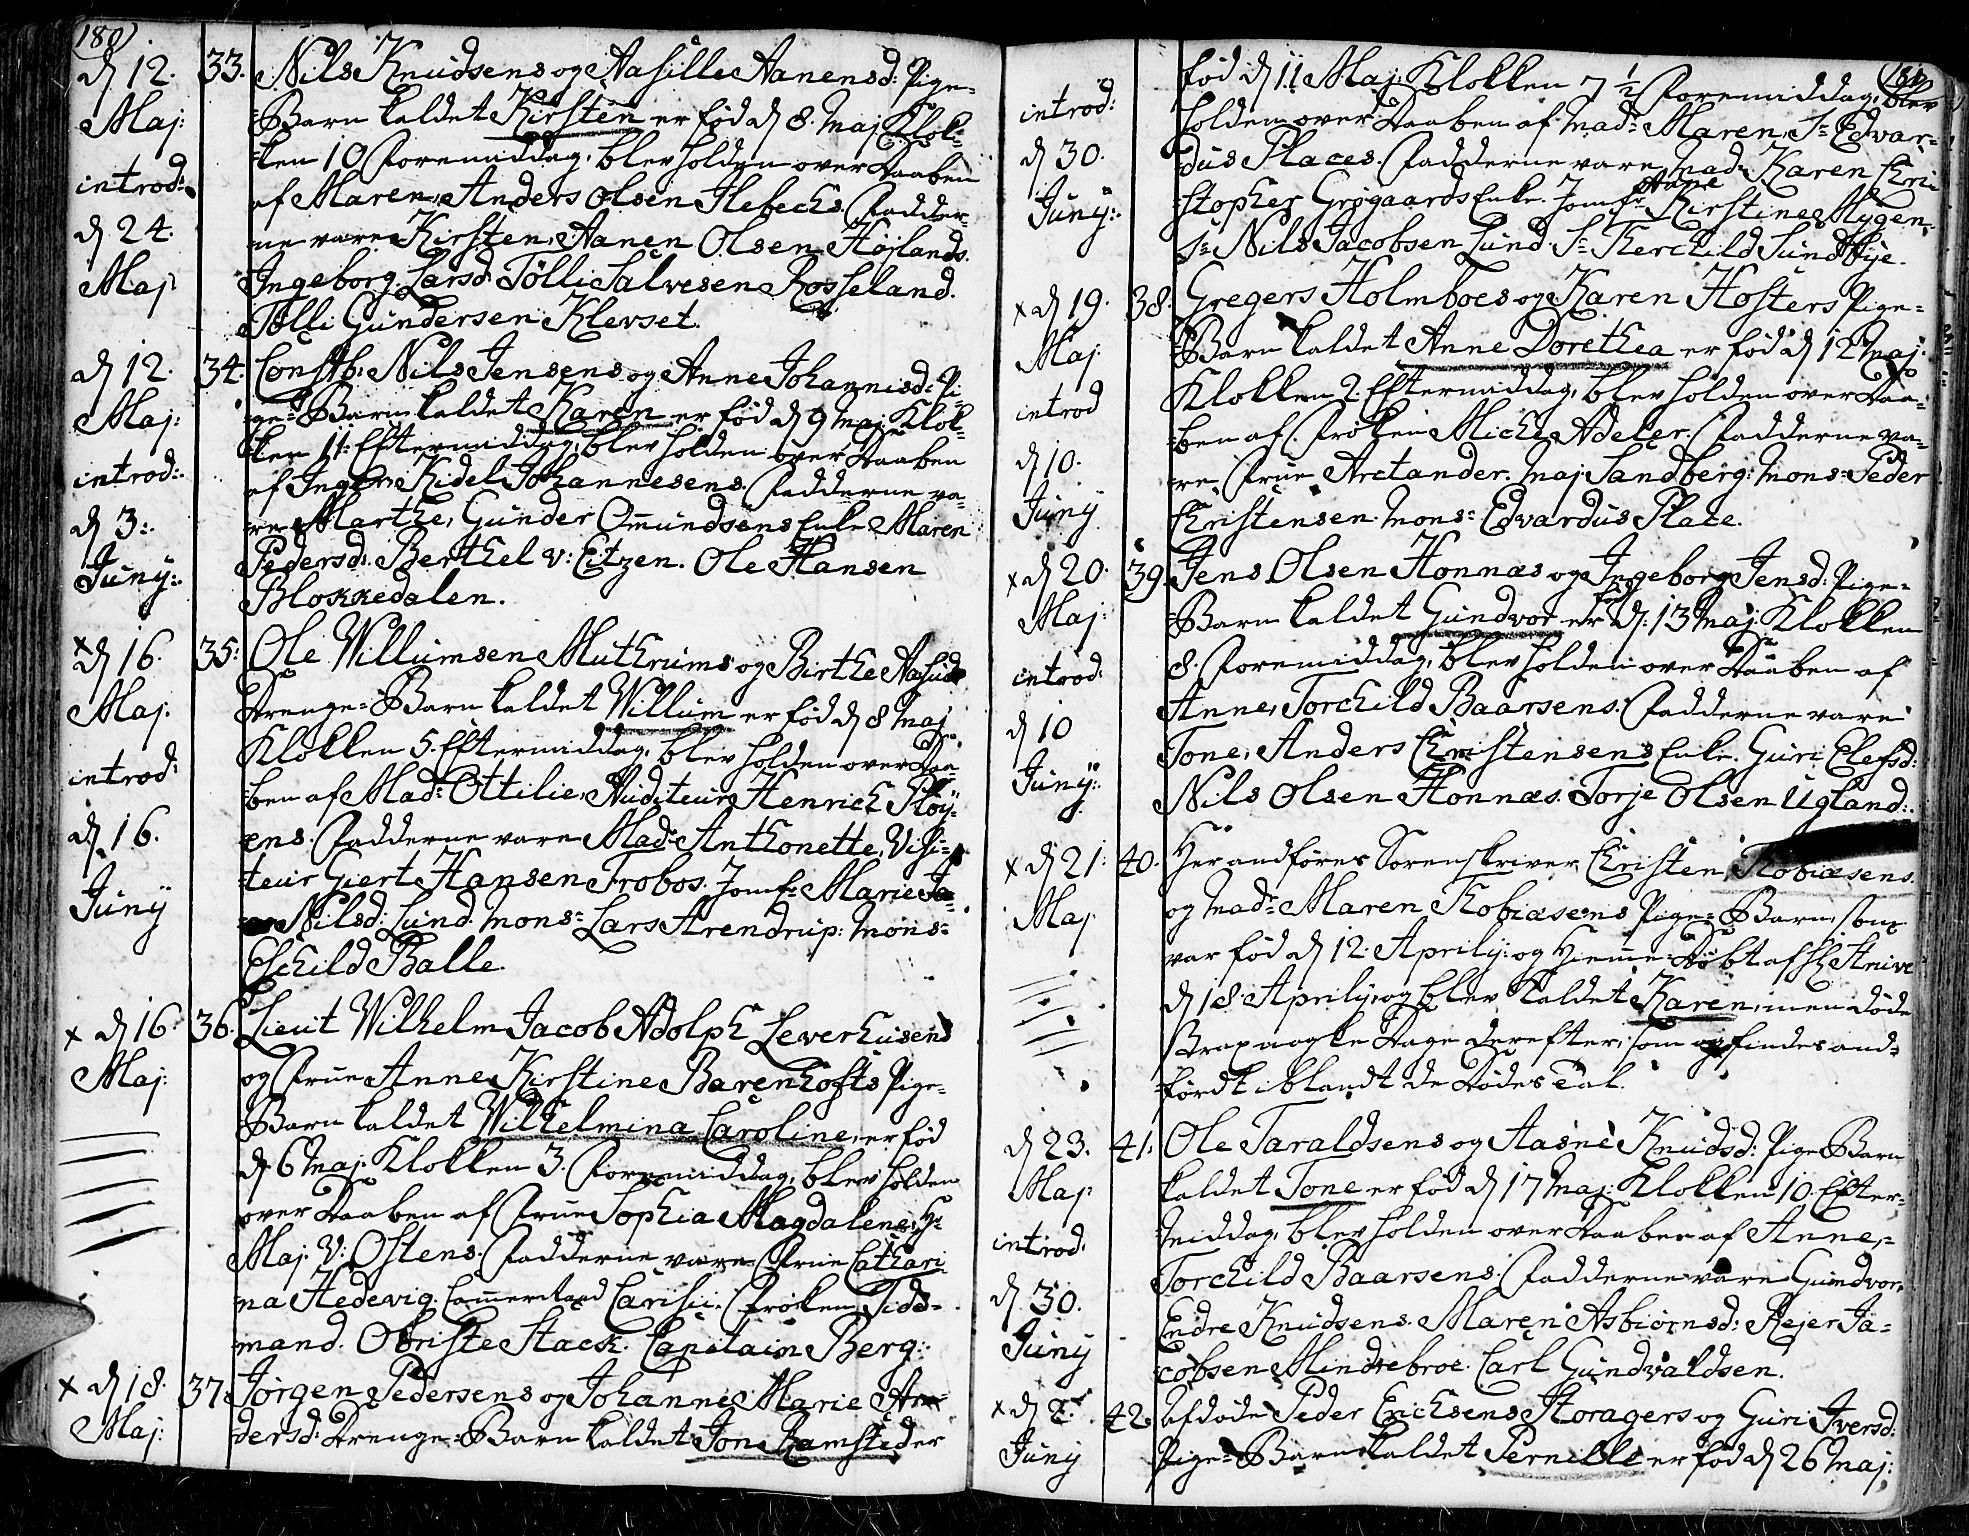 180.
d 12. Maj: introd: d 24. Maj
33. Nils Knudsens og Aasille Aanensd: Pige=
Barn kaldet Kirsten er fød d 8. Maj Klok=
ken 10 Formiddag, blev holden over Daaben
af Maren, Anders Olsen Hebechs. Fadder
ne vare Kirsten, Aanen Olsen Højlands.
Ingeborg Larsd: Tølli Salvesen Rosseland.
Tølli Gundersen Klevset.
d 12. Maj: introd: d 3: Juny:
34. Constb: Nils Jensens og Anne Johannisd: Pi
ge= Barn kaldet Karen er fød d 9 Maj Klok=
ken 11 Eftermiddag, blev holden over Daaben
af Inger, Kidel Johannesens. Fadderne va
re Marthe, Gunder Omundsens Enke Maren
Pedersd: Berthel v: Eitzen. Ole Hansen
Blokkedalen.
x d 16. Maj. introd: d. 16. Juny
35: Ole Willumsen Muthrums og Birthe
Drenge= Barn kaldet Willum er fød d 8 Maj
Klokken 5. Eftermiddag, blev holden over Daa=
ben af Mad: Ottilie, Auditeur Henrich Pløÿ=
ens. Fadderne vare Mad: Anthonette, Visi=
teur Giert Hansen Frobos. Jomfr: Marie
Nilsd: Lund. Mons: Lars Arendrup: Mons=
Eschild Balle.
x d 16: Maj:
36. Lieut Wilhelm Jacob Adolph Leverhusens
og Frue Anne Kirstine Barenhofts Pige=
Barn kaldet Wilhelmina Caroline, er fød
d 6 Maj. Klokken 3. Formiddag, blev holden
over Daaben af Frue Sophia Magdalene, Hr
Maj. V: Ostens. Fadderne vare Frue Cathari
na Hedevig. Cammerraad Carisii. Frøken Tid=
mand. Obriste Stack. Capitain Berg:
x d 18. Maj:
37. Jørgen Pedersens og Johanne Marie An
dersd: Drenge= Barn kaldet Jon Ramsteder
181
introd: d 30. Juny:
fød d 11 Maj: Klokken 7 1/2 Formiddag, blev
holden over Daaben af Mad: Maren, Sr Edvar=
dus Places. Fadderne vare Mad: Karen Chri
stopher Grøgaards Enke. Jomfr Anne Kirstine Mygen
Sr Nils Jacobsen Lund. Sr Therchild Sundbye.
x d 19. Maj. introd d 10. Juny
38. Gregers Holmboes og Karen Hosters Pige=
Barn kaldet Anne Dorethea er fød d 12 Maj.
Klokken 2. Eftermiddag, blev holden over Daa=
ben af Frøken Miche Adeler. Fadderne va=
re Frue Arctander. Maj Sandberg: Mons: Peder
Christensen. Mons: Edvardus Place.
x d 20. Maj: introd: d 10 Juny:
39. Jens Olsen Honnæs og Ingeborg Jensd: Pige=
Barn kaldet Gundvor er fød d. 13 Maj: Klokken
8. Formiddag, blev holden over Daaben af
Anne, Torchild Baarsens: Fadderne vare
Tone, Anders Christensens Enke. Guri Elefsd:
Nils Olsen Honnæs. Torje Olsen Ugland:
x d 21: Maj
40. Her andføres Sorenskriver Christen Thobiæsens
og Mad: Maren Thobiæsens Pige= Barn, som
var fød d 12. Aprily: og Hiemme= Døbt af Hr Anive
d 18 Aprily, og blev kaldet Karen, men døde
Strax nogle Dage derefter, som og findes and=
ført iblandt de Dødes Tal.
d 23. Maj introd. d. 30. Juny
41. Ole Taraldsens og Aasne Knudsd: Pige Barn
kaldet Tone er fød d 17 Maj: Klokken 10. Efter=
middag, blev holden over Daaben af Anne,
Torchild Baarsens. Fadderne vare Gundvor,
Endre Knudsens. Maren Asbiørnsd: Rejer Ja=
cobsen Mindrebroe. Carl Gundvaldsen.
x d 2. Juny
42. Afdøde Peder Erichsens Storagers og Guri Iversd:
Pige= Barn kaldet Pernille er fød d 26 Maj: